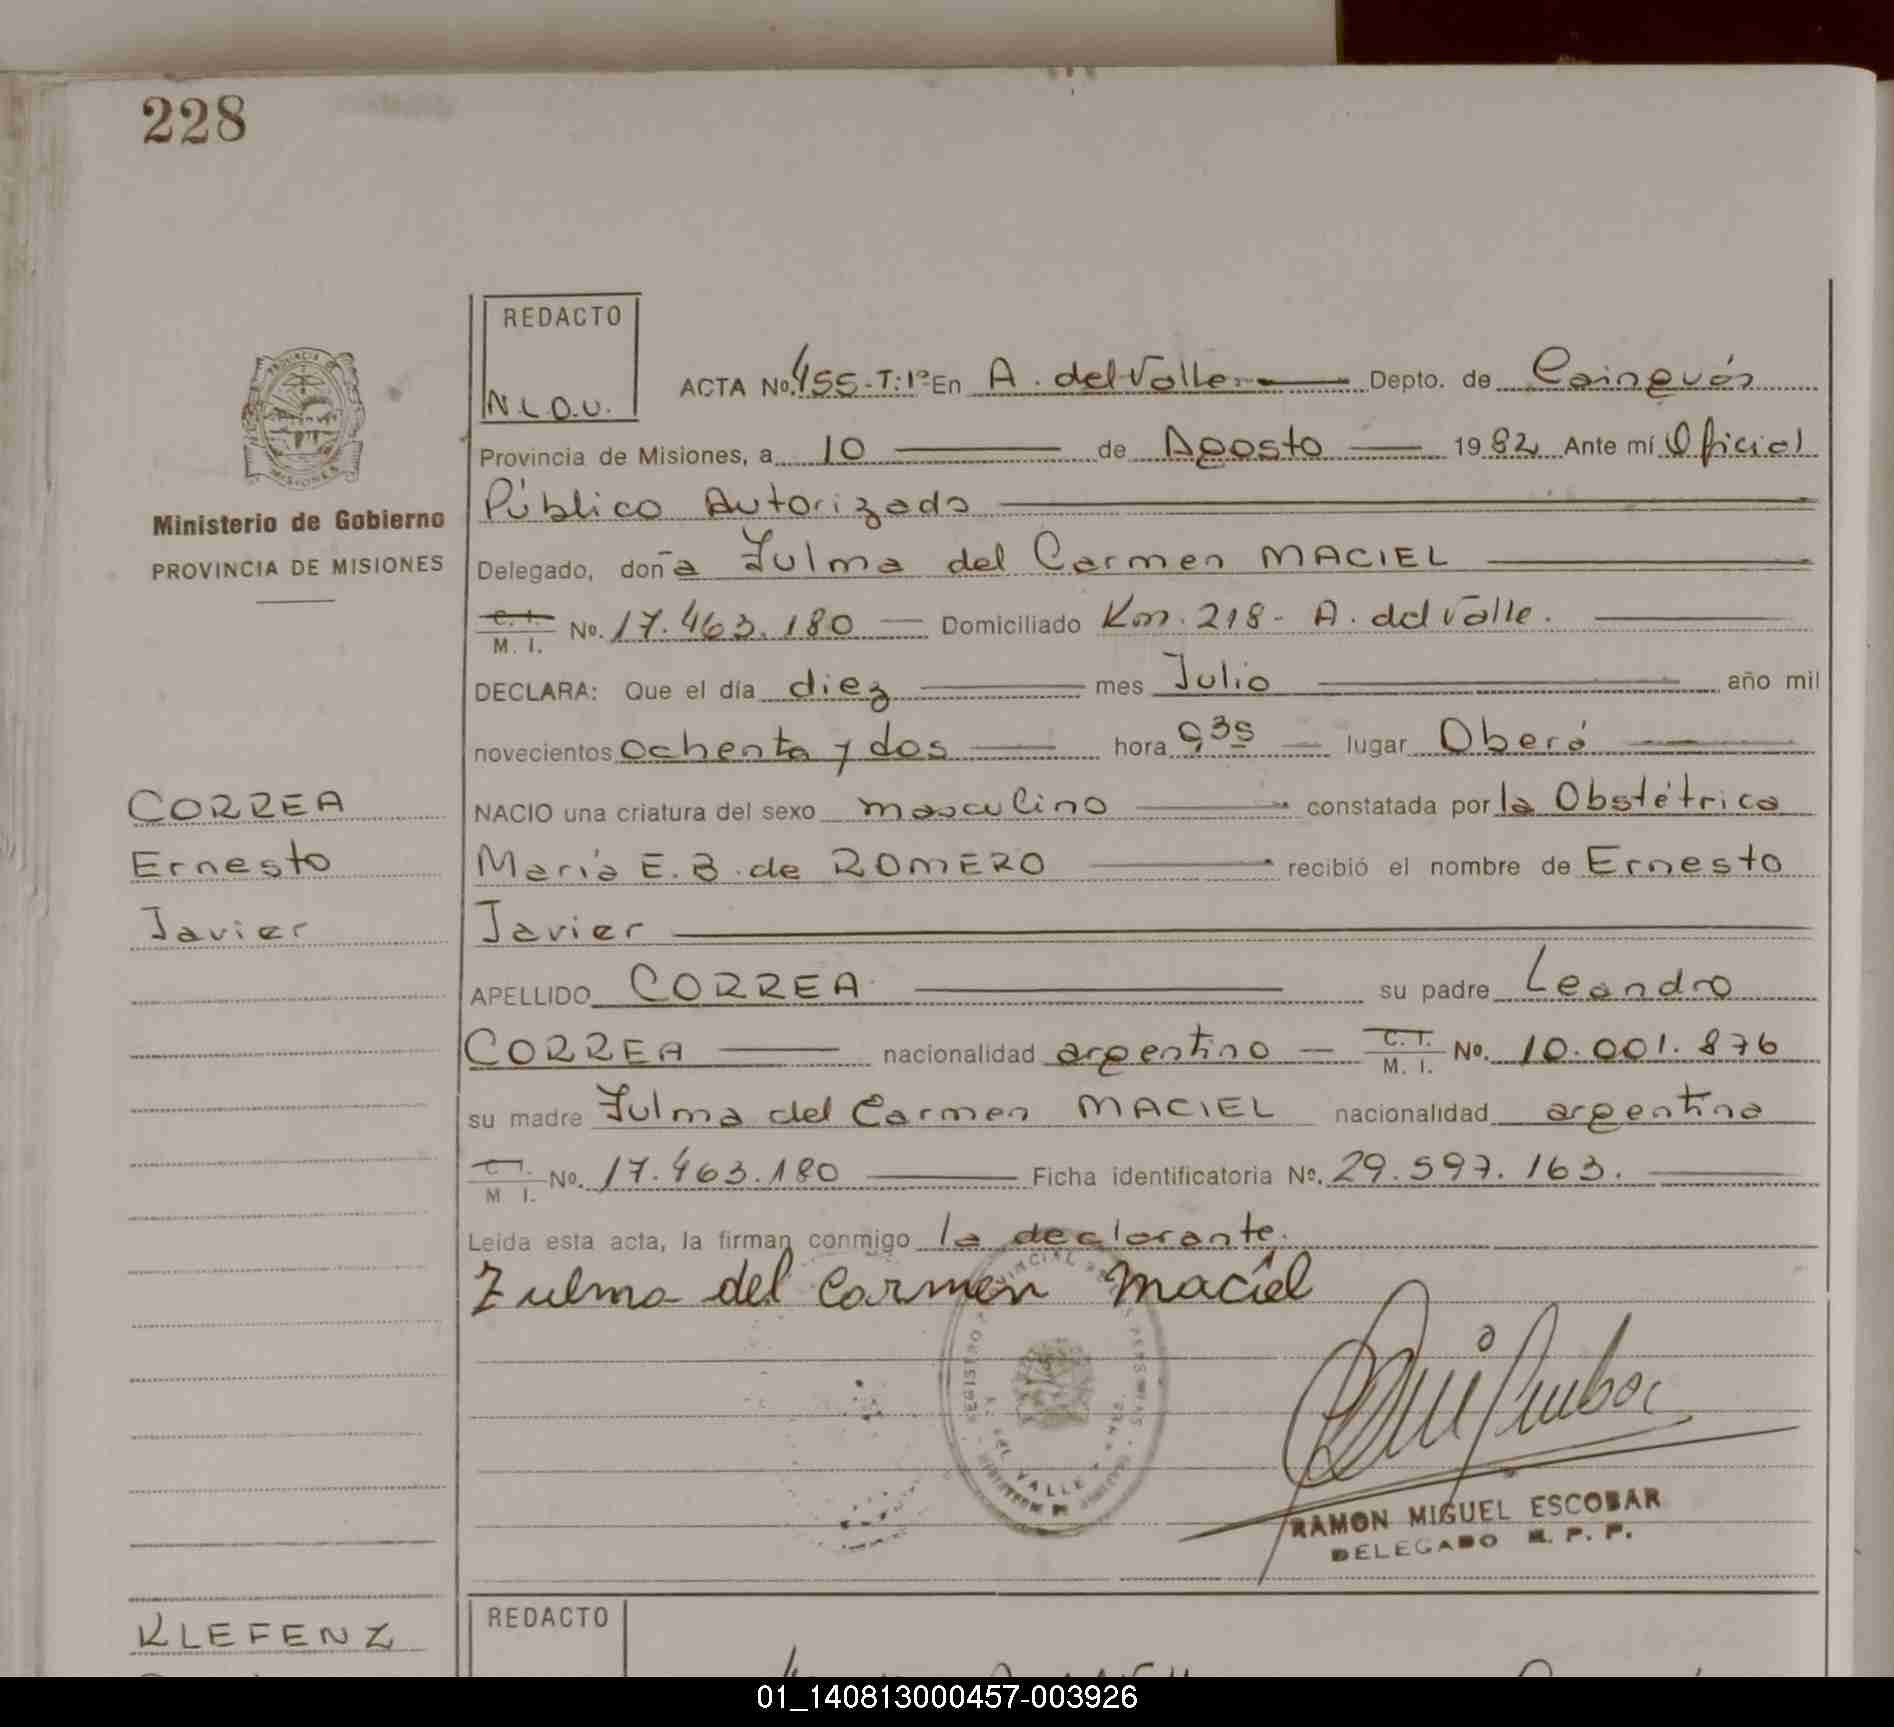 228
REDACTO
N.L.D.U.
ACTA No. 455-T:1º En A. del Valle. Depto. de Cainguás
Provincia de Misiones, a 10 de Agosto 1982 Ante mí Oficial
Público Autorizado
Delegado, doña Zulma del Carmen MACIEL
C. I.
M. I. No. 17.463.180 Domiciliado Km. 218- A. del Valle.
DECLARA: Que el día diez mes Julio año mil
novecientos ochenta y dos hora 9,35 lugar Oberá
NACIO una criatura del sexo masculino constatada por la Obstétrica
María E. B. de ROMERO recibió el nombre de Ernesto
Javier
APELLIDO CORREA su padre Leandro
CORREA nacionalidad argentino C. I. M. I. No. 10.001.876
su madre Zulma del Carmen MACIEL nacionalidad argentina
C. I. M I. No. 17.463.180 Ficha identificatoria No. 29.597.163.
Leída esta acta, la firman conmigo la declarante.
Zulma del Carmen Maciel
RAMON MIGUEL ESCOBAR
DELEGADO R. P. P.
PROVINCIA DE MISIONES
Ministerio de Gobierno
PROVINCIA DE MISIONES
CORREA
Ernesto
Javier
KLEFENZ
REDACTO
01_140813000457-003926